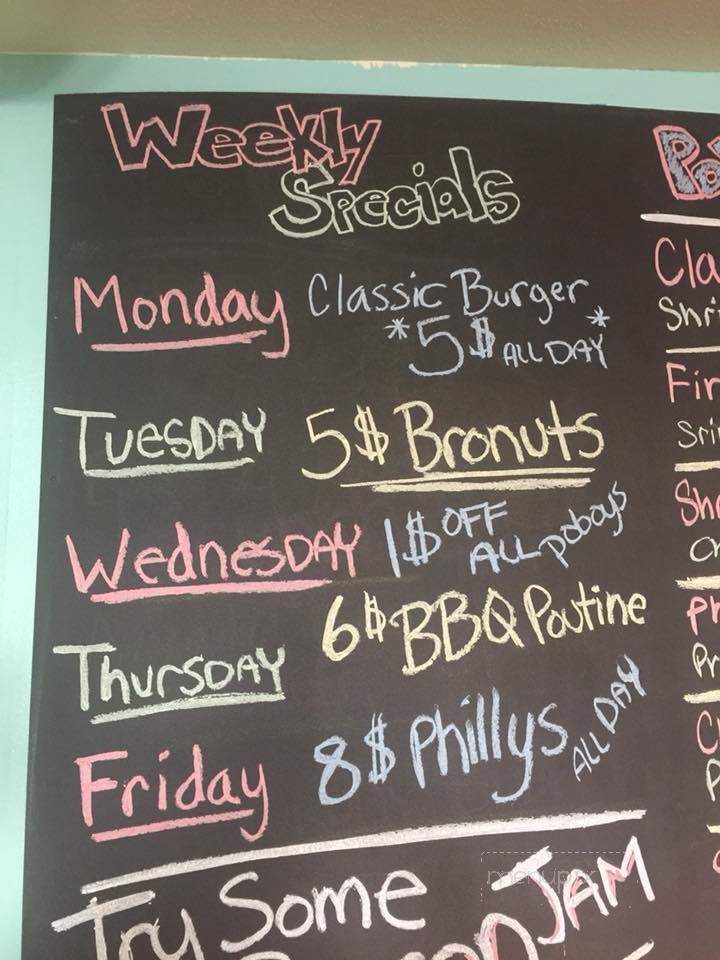 Weekly
Specials
Monday Classic Burger
*5$ ALL DAY*
TUESDAY 5$ Bronuts
WednesDAY 1$ OFF
ALL poboys
THURSDAY 6$ BBQ Poutine
Friday 8$ Phillys ALL DAY
Try Some
JAM
Po
Cla
Shri
Fir
Sri
Sh
Ch
Pr
C
P
menupix